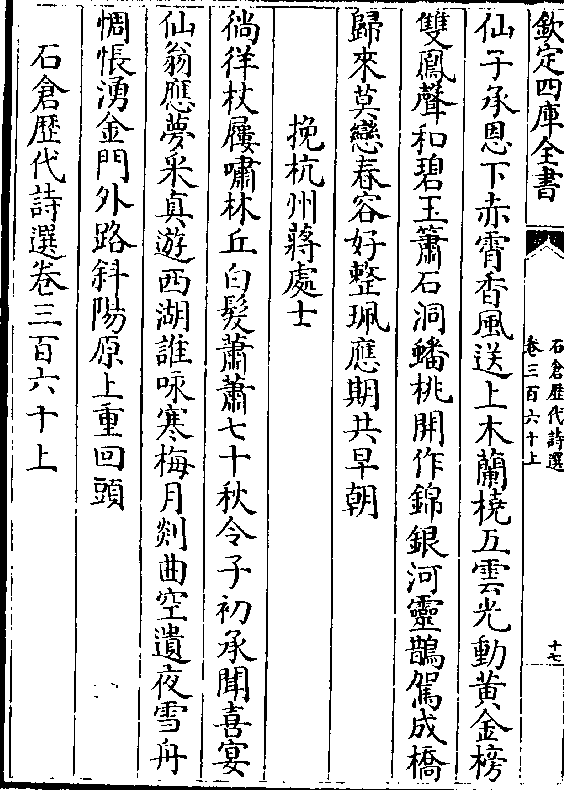 欽定四庫全書
石倉歴代詩選
卷三百六十上
十七
仙子承恩下赤霄香風送上木蘭橈五雲光動黄金榜
雙鳳聲和碧玉簫石洞蟠桃開作錦銀河靈鵲駕成橋
歸來莫戀春容好整珮應期共早朝
挽杭州蔣處士
徜徉杖屨嘯林丘白髮蕭蕭七十秋令子初承聞喜宴
仙翁應夢采真遊西湖誰咏寒梅月剡曲空遺夜雪舟
惆悵湧金門外路斜陽原上重回頭
石倉歴代詩選卷三百六十上